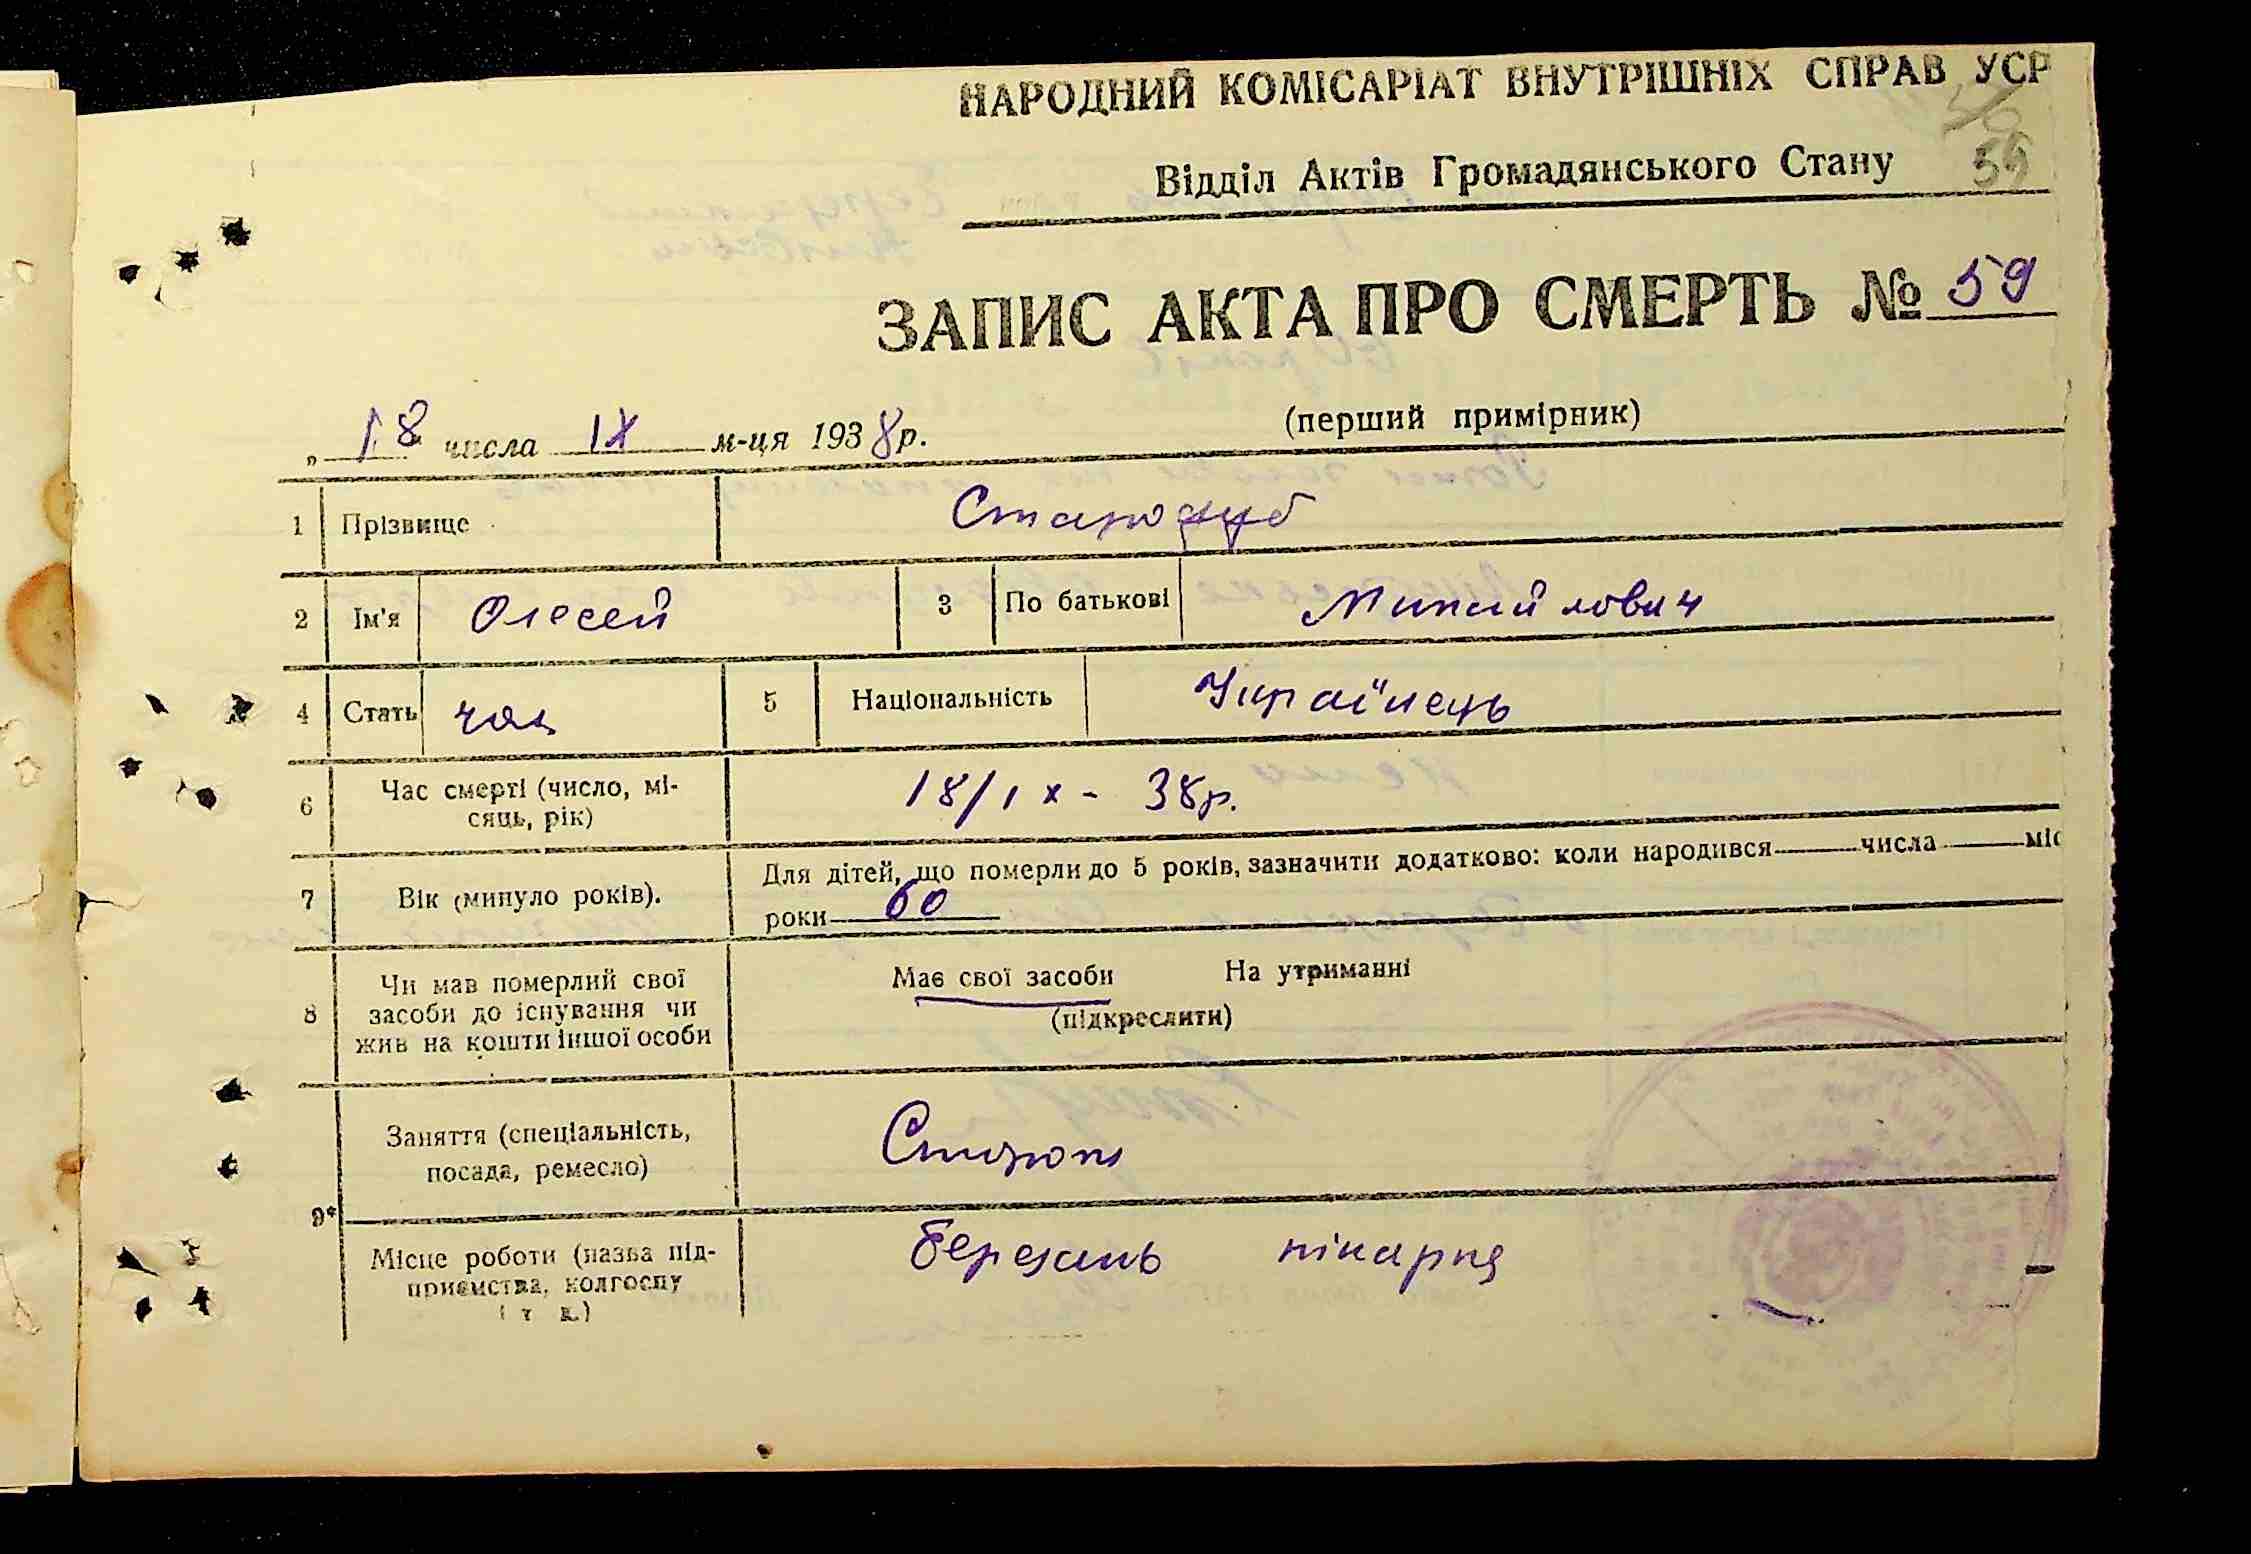 НАРОДНИЙ КОМІСАРІАТ ВНУТРІШНІХ СПРАВ УСР
Відділ Актів Громадянського Стану 59
ЗАПИС АКТА ПРО СМЕРТЬ № 59
„ 18 " числа IX м-ця 1938 р. (перший примірник)
1 Прізвище Стародуб
2 Ім'я Олесей 3 По батькові Михайлович
4 Стать чол 5 Національність Українець
6 Час смерті (число, мі-
сяць, рік) 18/IX - 38р.
7 Вік (минуло років). Для дітей, що померли до 5 років, зазначити додатково: коли народився числа міс
роки 60
8 Чи мав померлий свої
засоби до існування чи
жив на кошти іншої особи Має свої засоби На утриманні
(підкреслити)
Заняття (спеціальність,
посада, ремесло) Сторож
9*
Місце роботи (назва під-
приємства, колгоспу
і т. д.) Березань пікарня